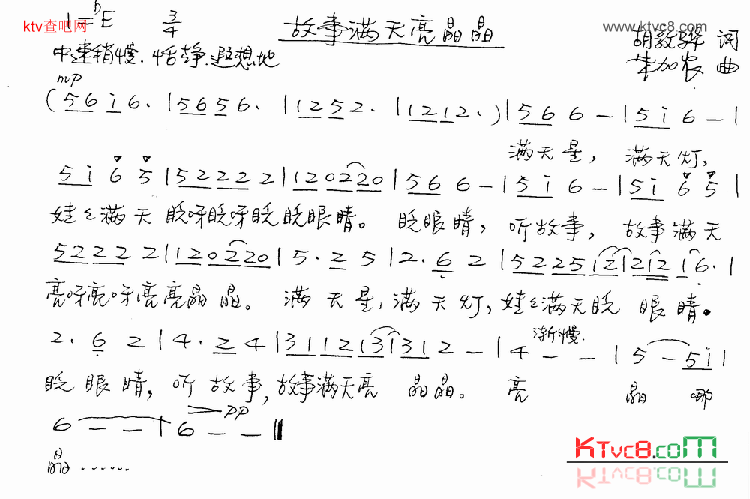 ktv查吧网
ktvc8.com
www.ktvc8.com
1=ᵇE 3/4 故事满天亮晶晶
中速稍慢.恬静.遐想地
词
朱加农 曲
mp
(5 6 i 6. | 5 6 5 6. | 1 2 5 2. | 1 2 1 2.) | 5 6 6 – | 5 i 6 – |
满天星, 满天灯,
5 i 6 5 | 5 2 2 2 2 | 1 2 0 2 2 0 | 5 6 6 – | 5 i 6 – | 5 i 6 5 |
娃娃满天眨呀眨呀眨眨眼睛。 眨眼睛, 听故事, 故事满天
5 2 2 2 2 | 1 2 0 2 2 0 | 5. 2 5 | 2. 6 2 | 5 2 2 5 1 2 | 2 1 2 1 6. |
亮呀亮呀亮亮晶晶。 满天星, 满天灯, 娃娃满天眨 眼睛。
渐慢.
2. 6 2 | 4. 2 4 | 3 1 1 2 1 3 | 3 1 2 – | 4 – – | 5 – 5 i |
眨眼睛, 听故事, 故事满天亮 晶晶。 亮 晶 哪
pp
6 – – | 6 – – ‖
晶······
KTvc8.com